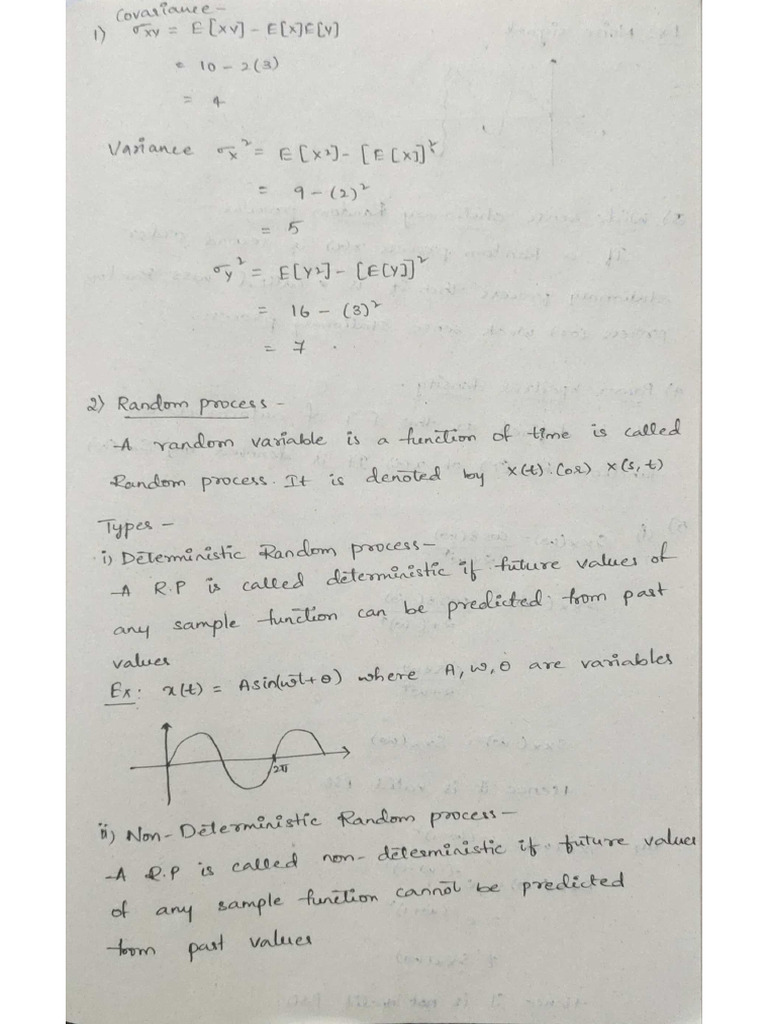 Covariance -
1) σxy = E[XY] - E[X]E[Y]
= 10 - 2(3)
= 4
Variance σx² = E[X²] - [E[X]]²
= 9 - (2)²
= 5
σy² = E[Y²] - [E[Y]]²
= 16 - (3)²
= 7
2) Random process -
A random variable is a function of time is called
Random process. It is denoted by x(t) (or) x(s, t)
Types -
i) Deterministic Random process -
A R.P is called deterministic if future values of
any sample function can be predicted from past
values
Ex: x(t) = A sin(ωt + θ) where A, ω, θ are variables
2π
ii) Non-Deterministic Random process -
A R.P is called non-deterministic if future values
of any sample function cannot be predicted
from past values